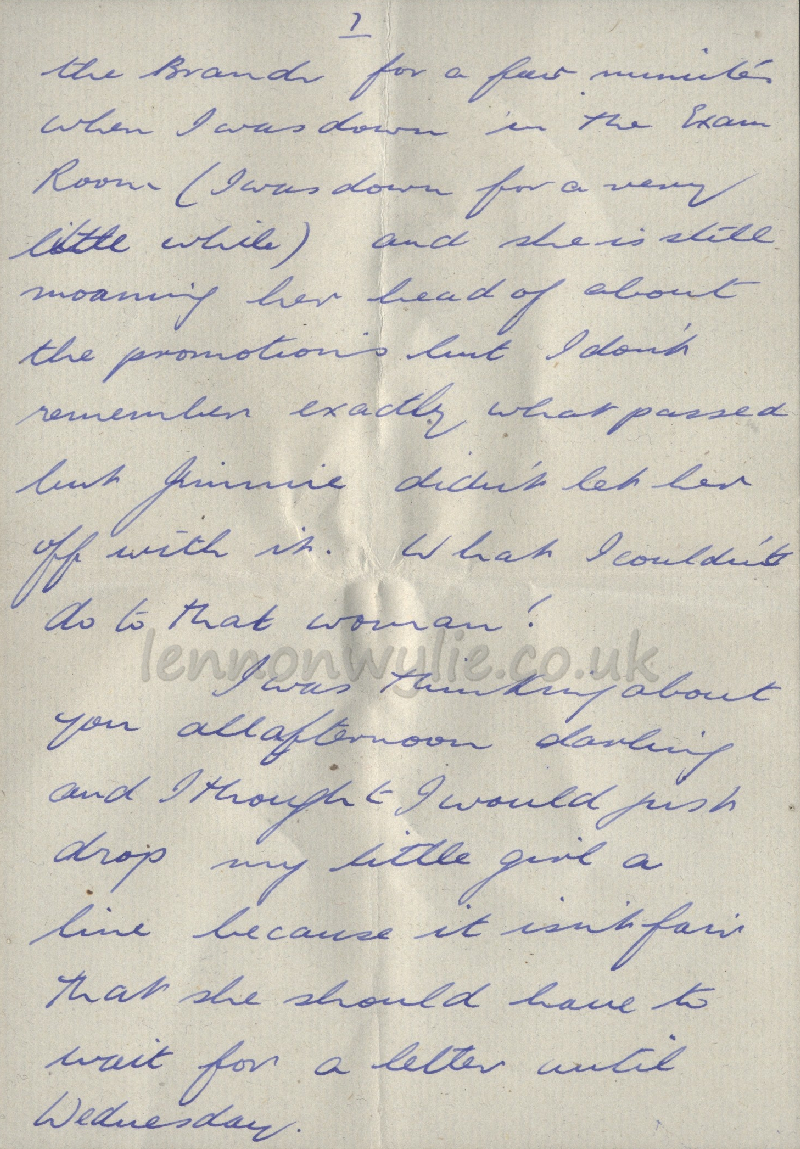 7
the Branch for a few minutes
when I was down in the Exam
Room (I was down for a very
little while) and she is still
moaning her head of about
the promotions but I don't
remember exactly what passed
but Jimmie didn't let her
off with it. What I couldn't
do to that woman!
lennonwylie.co.uk
I was thinking about
you all afternoon darling
and I thought I would just
drop my little girl a
line because it isn't fair
that she should have to
wait for a letter until
Wednesday.